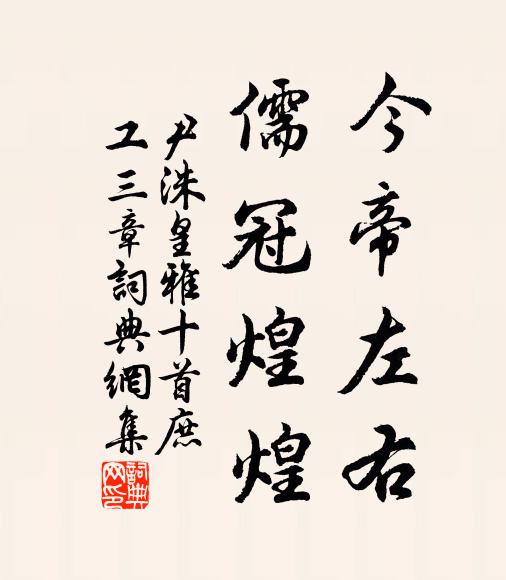 今帝左右
儒冠煌煌
尹洙皇雅十首庶
工三章詞典網集
詞典網印